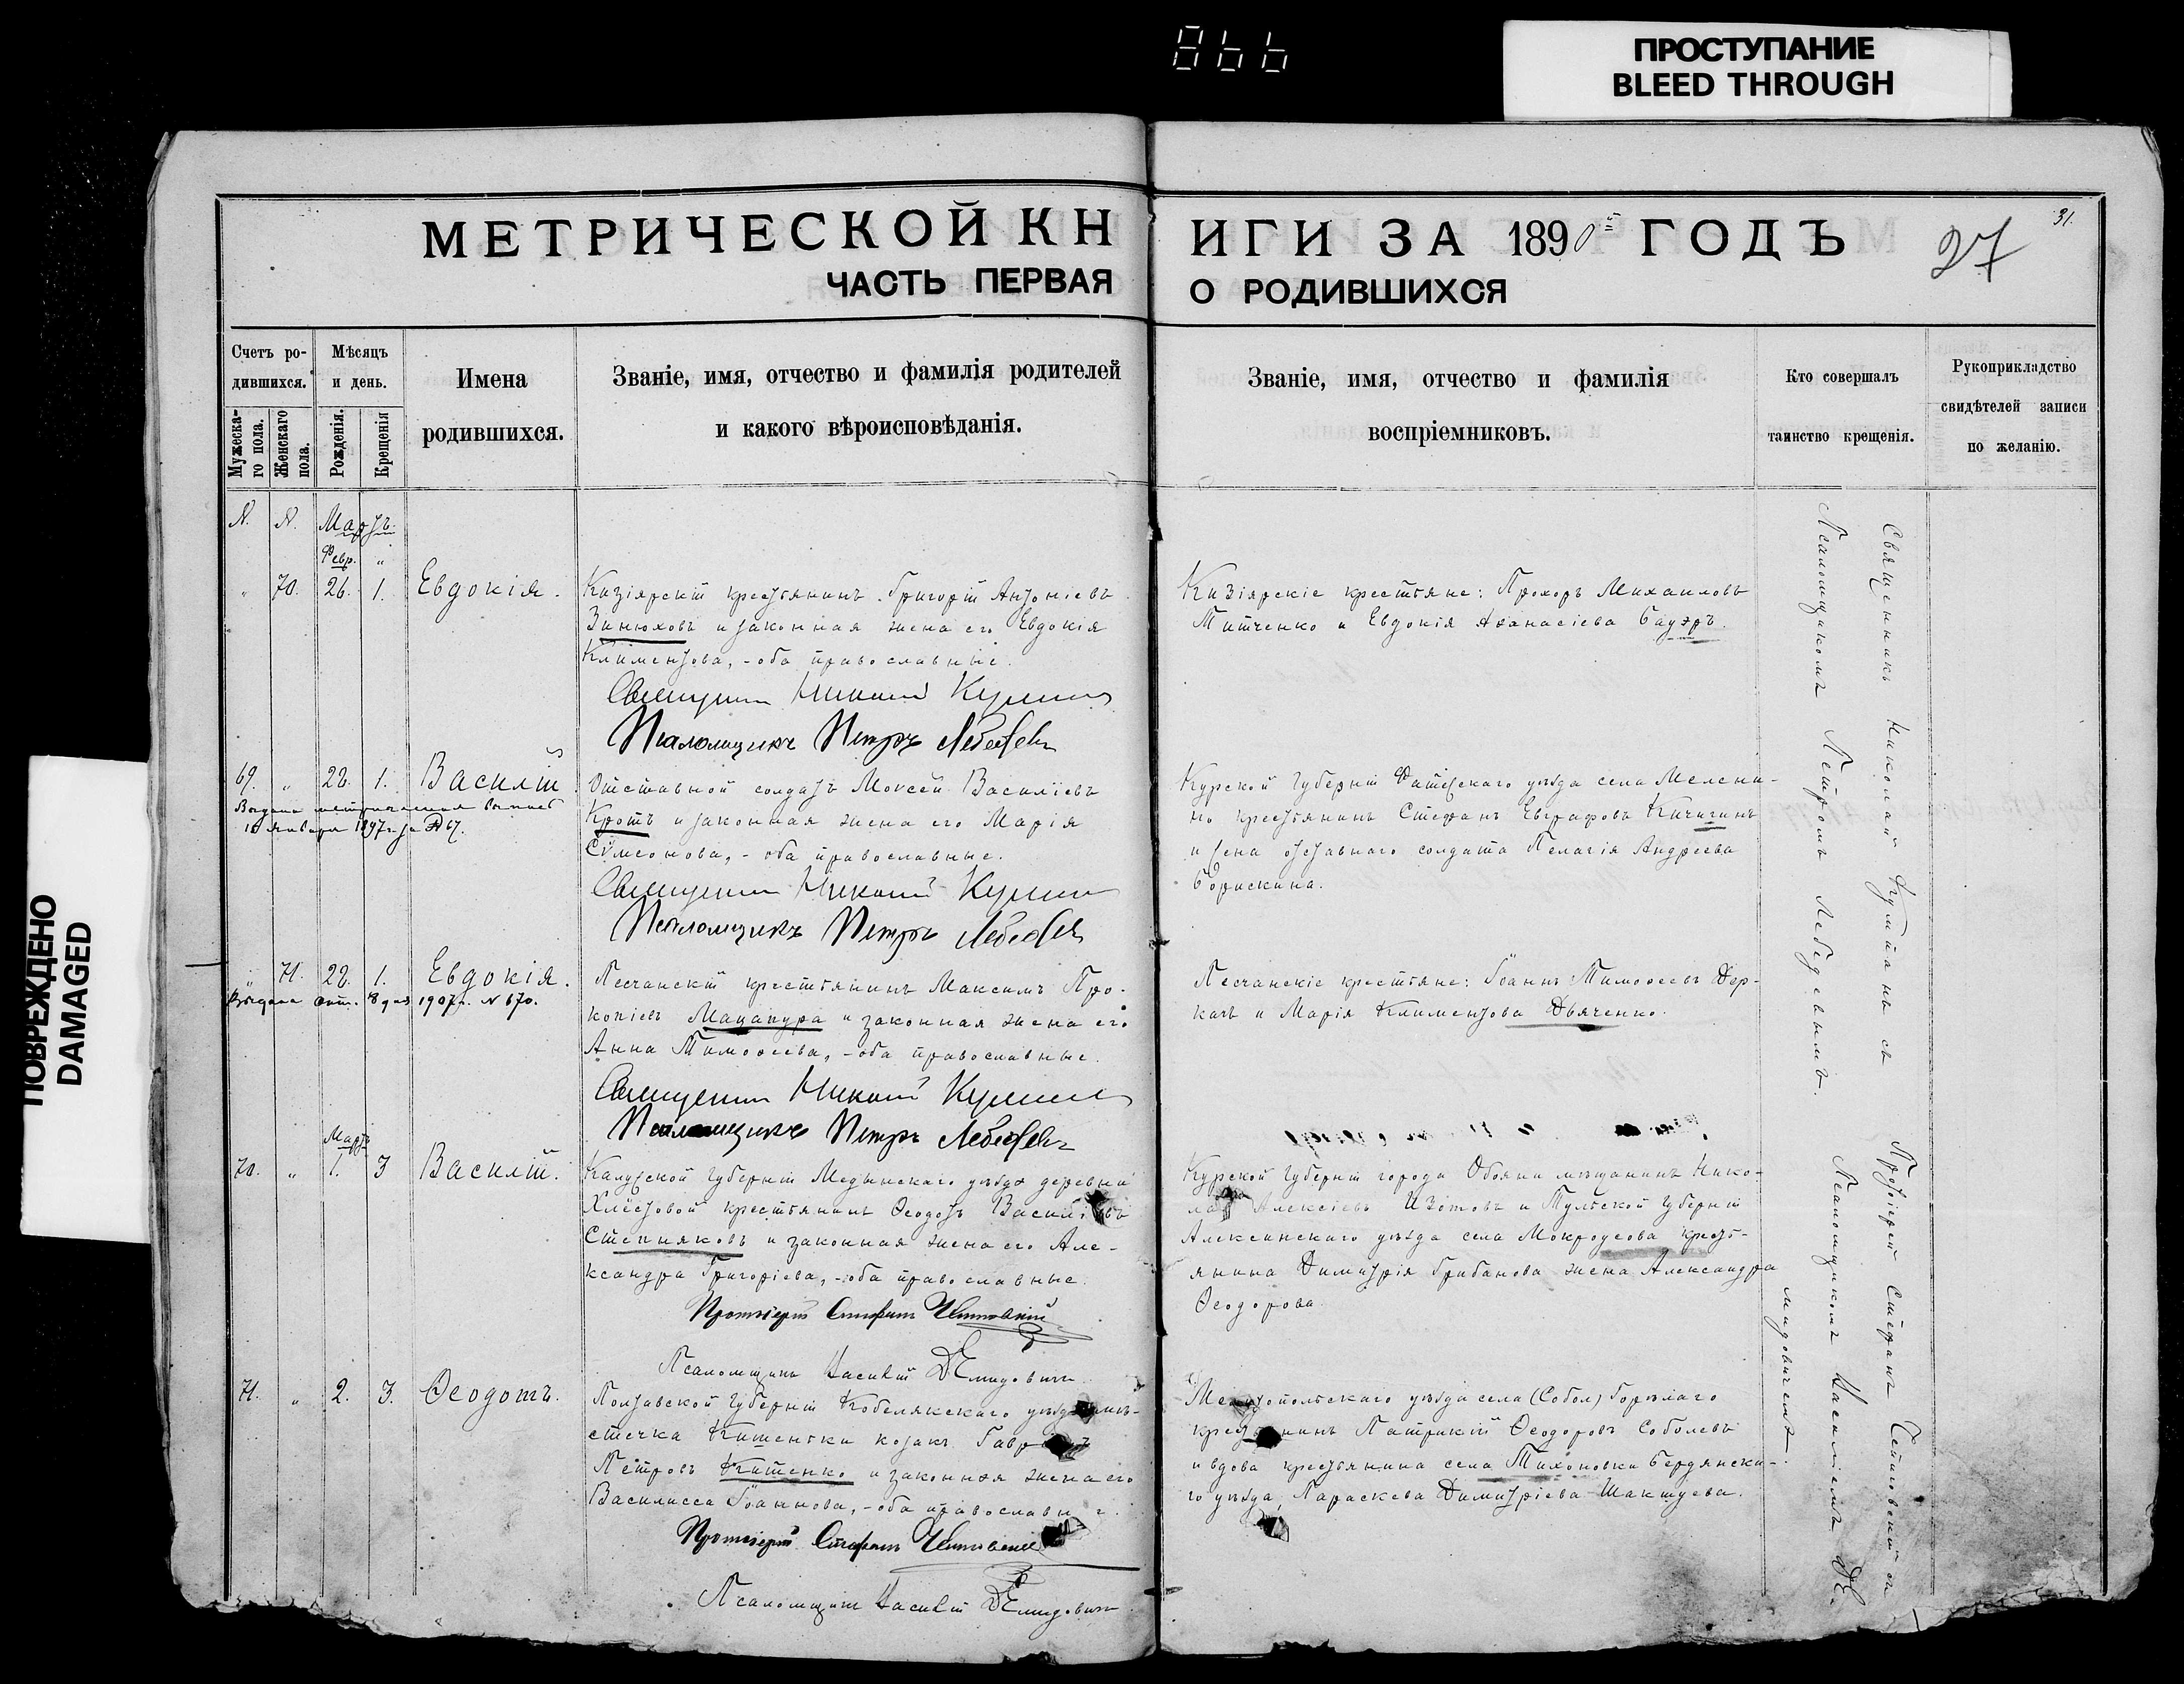 866
ПРОСТУПАНИЕ
BLEED THROUGH
ПОВРЕЖДЕНО
DAMAGED
МЕТРИЧЕСКОЙ КНИГИ ЗА 1890й ГОДЪ
27
31.
ЧАСТЬ ПЕРВАЯ О РОДИВШИХСЯ
Счетъ ро-
дившихся.
Мужеска-
го пола.
Женскаго
пола.
Мѣсяцъ
и день.
Рожденія.
Крещенія
Имена
родившихся.
Званіе, имя, отчество и фамилія родителей
и какого вѣроисповѣданія.
Званіе, имя, отчество и фамилія
воспріемниковъ.
Кто совершалъ
таинство крещенія.
Рукоприкладство
свидѣтелей записи
по желанію.
N. N. Мартъ.
Февр. "
" 70. 26. 1. Евдокія.
Кизіярскій крестьянинъ Григорій Антоніевъ
Зинюховъ и законная жена его Евдокія
Климентова, - оба православные.
Священникъ Николай
Псаломщикъ Петръ Лебедевъ
Кизіярскіе крестьяне: Прохоръ Михаиловъ
Титченко и Евдокія Аѳанасіева Бауэръ.
69. " 28. 1. Василій
Выдана метрическая выпись
января 1897 г. за № 67.
Отставной солдатъ Моѵсей Василіевъ
Кротъ и законная жена его Марія
Сѵмеонова, - оба православные.
Священникъ Николай
Псаломщикъ Петръ Лебедевъ
Курской губерніи Фатежскаго уѣзда села Мелени-
но крестьянинъ Стефанъ Евграфовъ Кичигинъ
и жена отставнаго солдата Пелагія Андреева
Борискина.
" 71. 28. 1. Евдокія.
Выдана 1907 г. N 670.
Песчанскій крестьянинъ Максимъ Про-
копіевъ Мацапура и законная жена его
Анна Тимоѳеева, - оба православные.
Священникъ Николай
Псаломщикъ Петръ Лебедевъ
Песчанскіе крестьяне: Іоаннъ Тимоѳеевъ Дер-
качъ и Марія Климентова Дьяченко.
Мартъ
70. " 1. 3 Василій.
Калужской губерніи Медынскаго уѣзда деревни
крестьянинъ Ѳеодотъ Василіевъ
Степняковъ и законная жена его Але-
ксандра Григоріева, - оба православные.
Протоіерей Стефанъ
Псаломщикъ Василій Демидовичъ
Курской губерніи города Обояни мѣщанинъ Нико-
лай Алексіевъ Изотовъ и Тульской губерніи
Алексинскаго уѣзда села Мокроусова крестъ-
янина Димитрія Грибанова жена Александра
Ѳеодорова.
71. " 2. 3. Ѳеодотъ.
Полтавской губерніи Кобелякскаго уѣзда мѣ-
стечка Китенски козакъ
Петровъ Китенко и законная жена его
Василисса Іоаннова, - оба православные.
Протоіерей Стефанъ
Псаломщикъ Василій Демидовичъ
Мелитопольскаго уѣзда села (Собол) Горѣлаго
крестьянинъ Патрикій Ѳеодоровъ Соболевъ
и вдова крестьянина села Тихоновки Бердянска-
го уѣзда, Параскева Димитріева Шактуева.
Священникъ Николай съ
Псаломщикомъ Петромъ Лебедевымъ.
Протоіерей Стефанъ съ
Псаломщикомъ Василіемъ Де-
мидовичемъ.